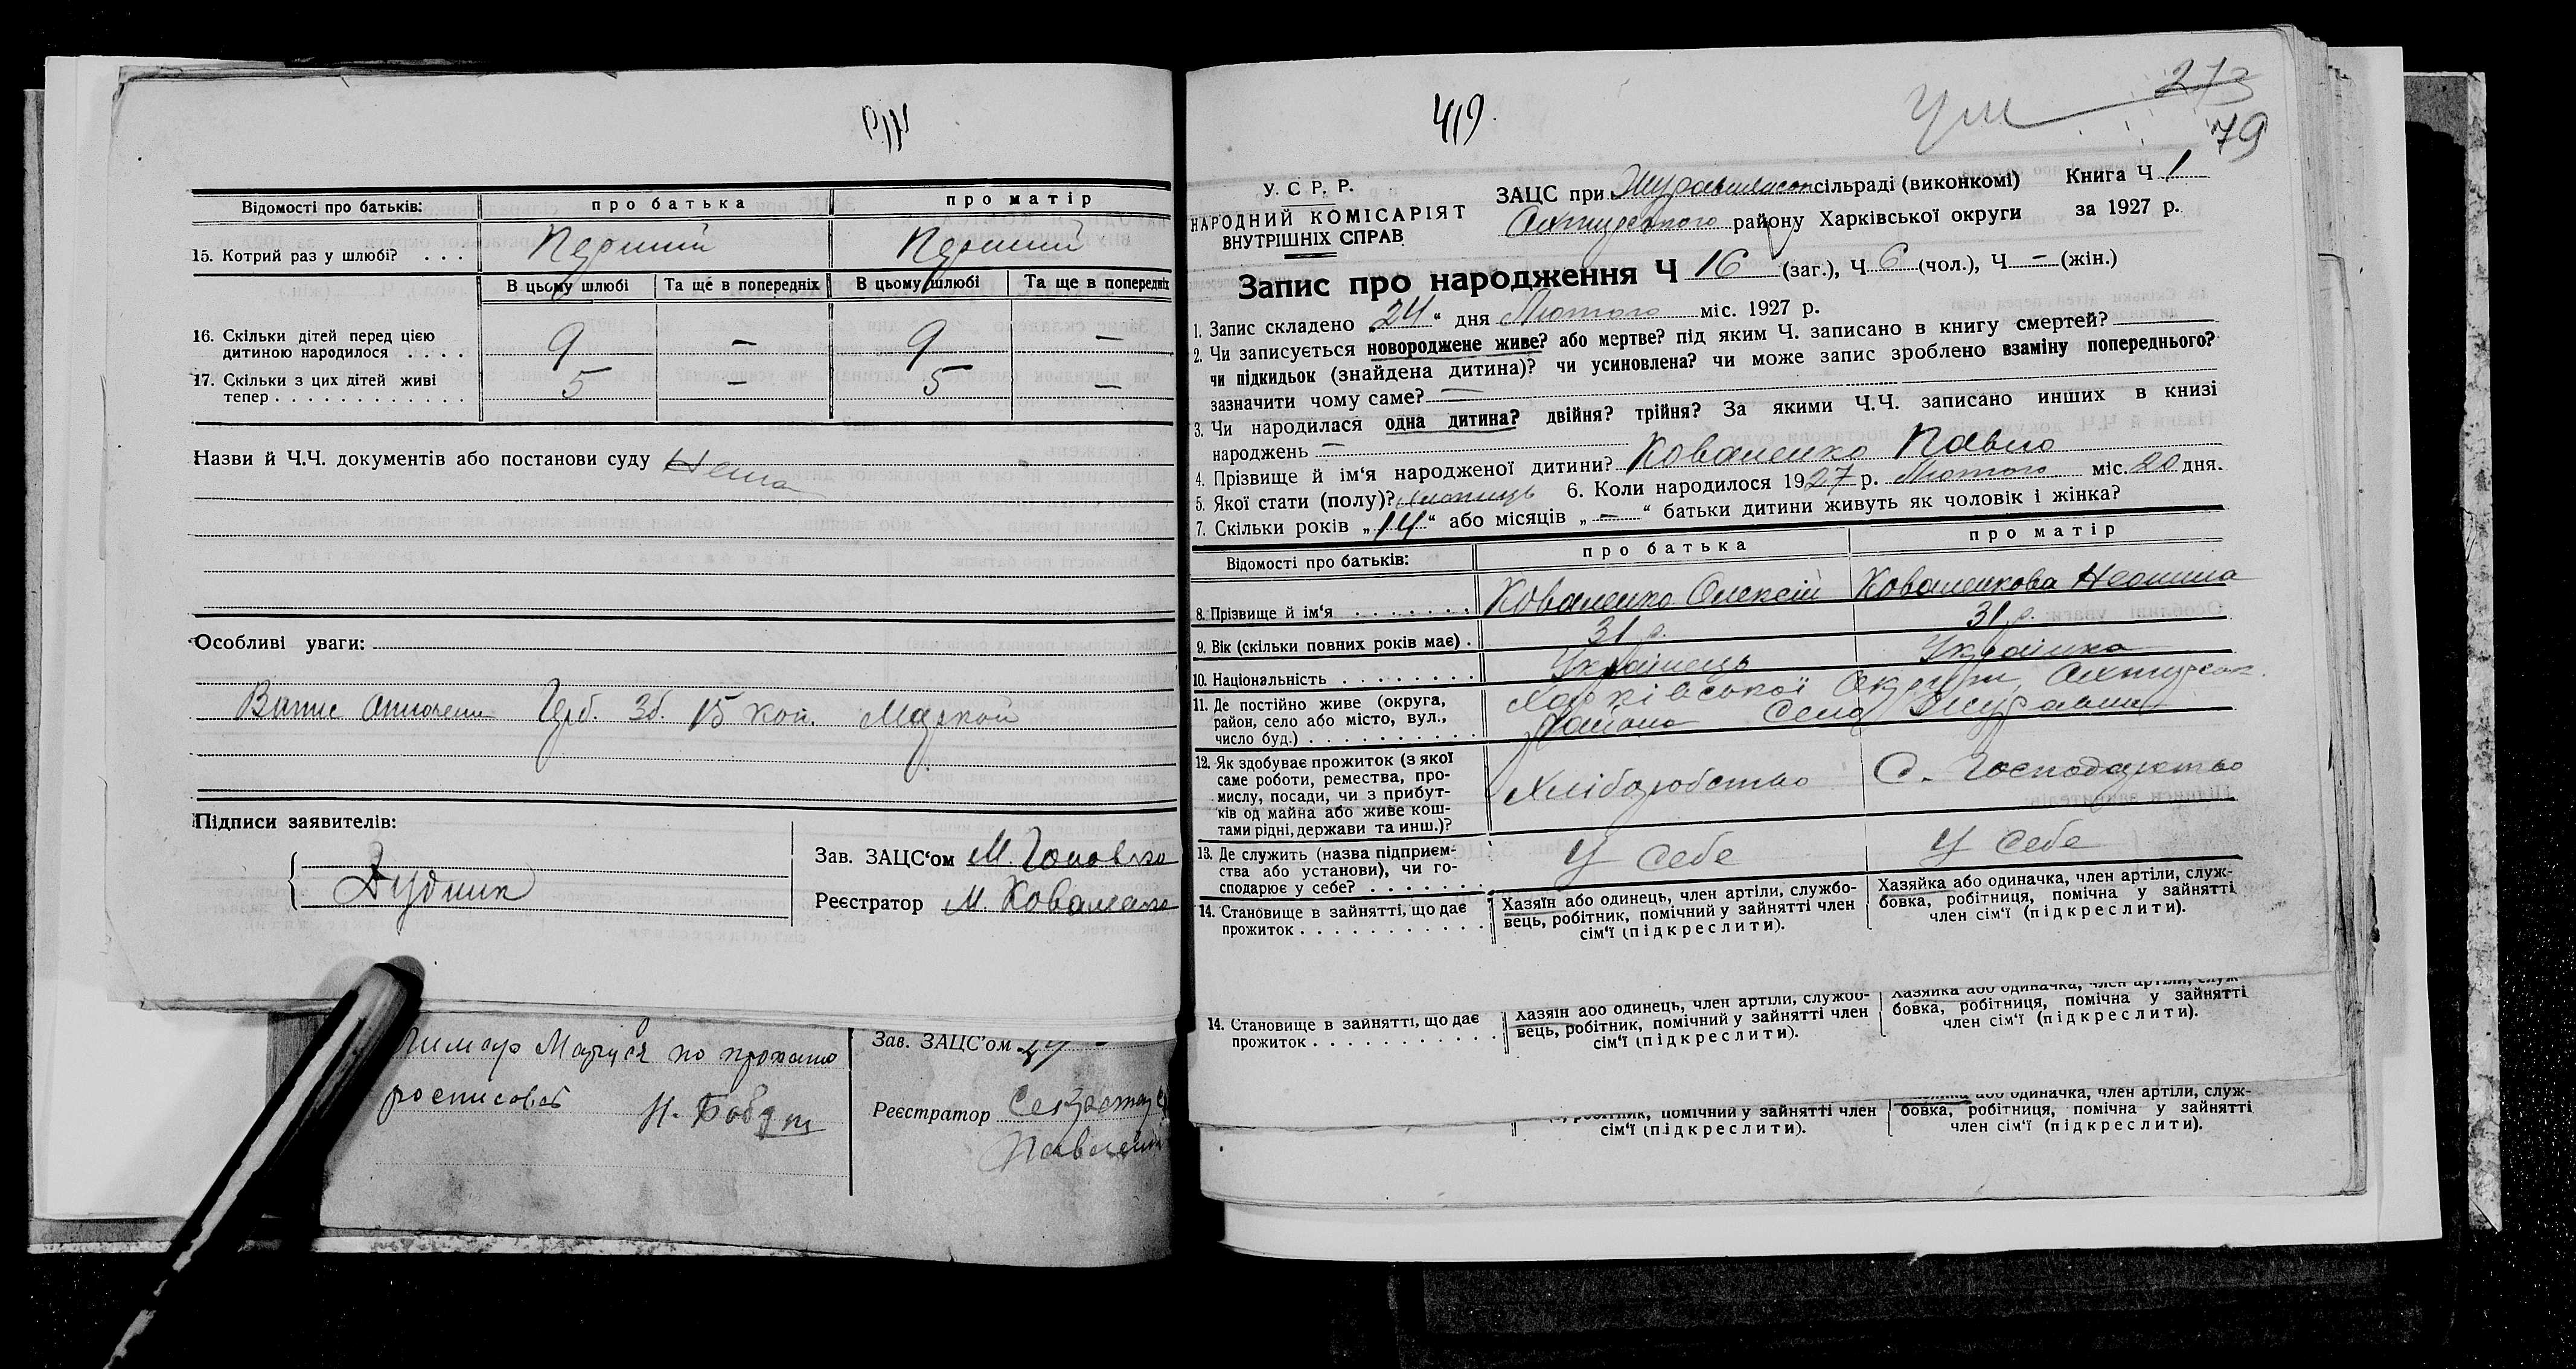 Відомості про батьків: про батька про матір
15. Котрий раз у шлюбі? . . . Перший Перший
В цьому шлюбі Та ще в попередніх В цьому шлюбі Та ще в попередніх
16. Скільки дітей перед цією
дитиною народилося . . . . 9 — 9 —
17. Скільки з цих дітей живі
тепер . . . . . . . . . . . . 5 — 5 —
Назви й Ч.Ч. документів або постанови суду Нема
Особливі уваги:
Випис оплочени Герб. Зб. 15 коп. Маркой
Підписи заявителів:
Дудник
Зав. ЗАЦС‘ом М. Головко
Реєстратор М. Коваленко
Маруся по прохані
росписався Н. Бобун
Зав. ЗАЦС’ом
Реєстратор Секретар
419.
273
79
У. С Р. Р.
НАРОДНИЙ КОМІСАРІЯТ
ВНУТРІШНІХ СПРАВ
ЗАЦС при сільраді (виконкомі) Книга Ч 1
району Харківської округи за 1927 р.
Запис про народження Ч 16 (заг.), Ч 6 (чол.), Ч — (жін.)
1. Запис складено „24“ дня Лютого міс. 1927 р.
2. Чи записується новороджене живе? або мертве? під яким Ч. записано в книгу смертей?
чи підкидьок (знайдена дитина)? чи усиновлена? чи може запис зроблено взаміну попереднього?
зазначити чому саме? —
3. Чи народилася одна дитина? двійня? трійня? За якими Ч.Ч. записано инших в книзі
народжень —
4. Прізвище й ім‘я народженої дитини? Коваленко Павло
5. Якої стати (полу)? хлопець 6. Коли народилося 1927 р. Лютого міс. 20 дня.
7. Скільки років „14“ або місяців „—“ батьки дитини живуть як чоловік і жінка?
Відомості про батьків: про батька про матір
8. Прізвище й ім‘я . . . . . . . Коваленко Олексій Коваленкова
9. Вік (скільки повних років має) . 31 р. 31 р.
10. Національність . . . . . . . . Українець Українка
11. Де постійно живе (округа, Харківської Округи,
район, село або місто, вул., района Село
число буд.) . . . . . . . . . .
12. Як здобуває прожиток (з якої
саме роботи, ремества, про-
мислу, посади, чи з прибут-
ків од майна або живе кош-
тами рідні, держави та инш.)? Хліборобство С. Господарство
13. Де служить (назва підприєм-
ства або установи), чи го-
сподарює у себе? . . . . . . . У себе У себе
14. Становище в зайнятті, що дає
прожиток . . . . . . . . . . .
Хазяїн або одинець, член артіли, службо-
вець, робітник, помічний у зайнятті член
сім‘ї (підкреслити).
Хазяйка або одиначка, член артіли, служ-
бовка, робітниця, помічна у зайнятті
член сім‘ї (підкреслити).
14. Становище в зайнятті, що дає
прожиток . . . . . . . . . . .
Хазяїн або одинець, член артіли, службо-
вець, робітник, помічний у зайнятті член
сім‘ї (підкреслити).
Хазяйка або одиначка, член артіли, служ-
бовка, робітниця, помічна у зайнятті
член сім‘ї (підкреслити).
помічний у зайнятті член
сім‘ї (підкреслити).
або одиначка, член артіли, служ-
бовка, робітниця, помічна у зайнятті
член сім‘ї (підкреслити).